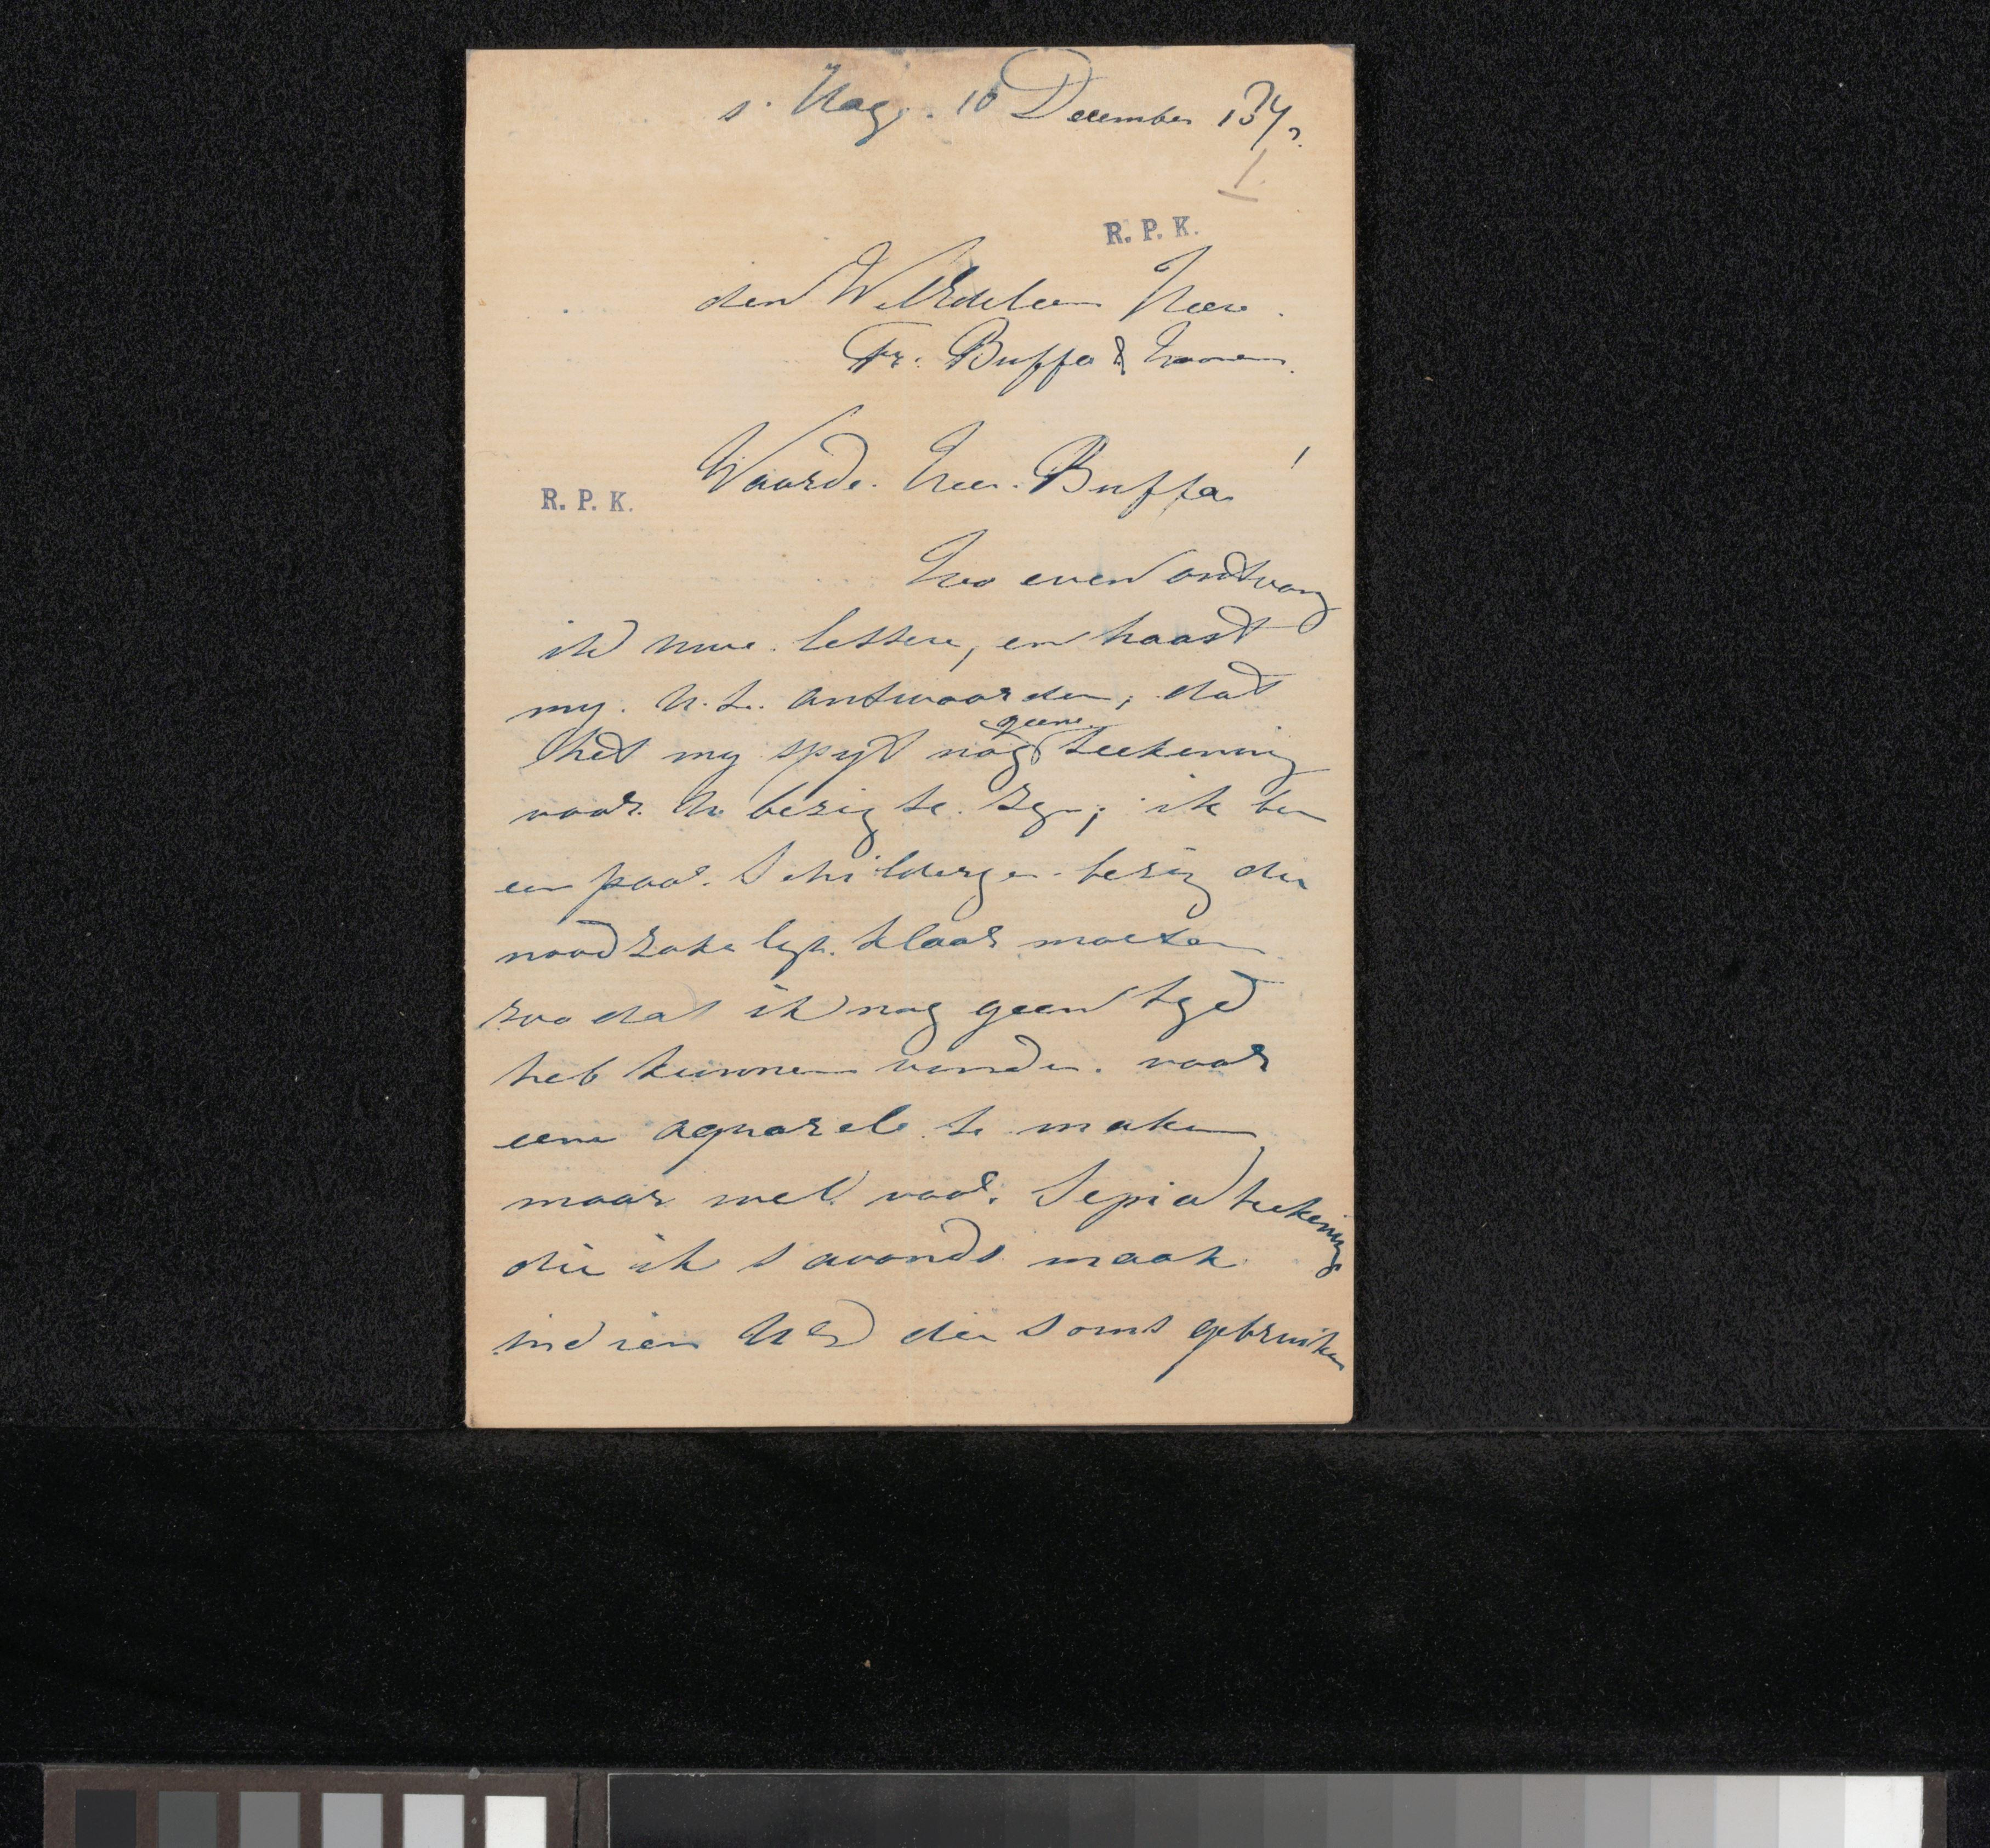 s. Hage. 10 December
1.
R. P. K.
den WelEdelen Heere
Fr. Buffa & Zoonen.
Waarde Heer Buffa!
R. P. K.
Zoo even ontvang
ik uwe letteren, en haast
my. U.E. antwoorden, dat
geene
het my spyt nog teekening
voor U bezig te zyn; ik ben
een paar Schilderyen bezig die
noodzakelyk klaar moeten
zoo dat ik nog geen tyd
heb kunnen vinden voor
eene aquarele te maken
maar wel voor Sepia teekening
die ik savonds maak
indien UEd die soms gebruiken